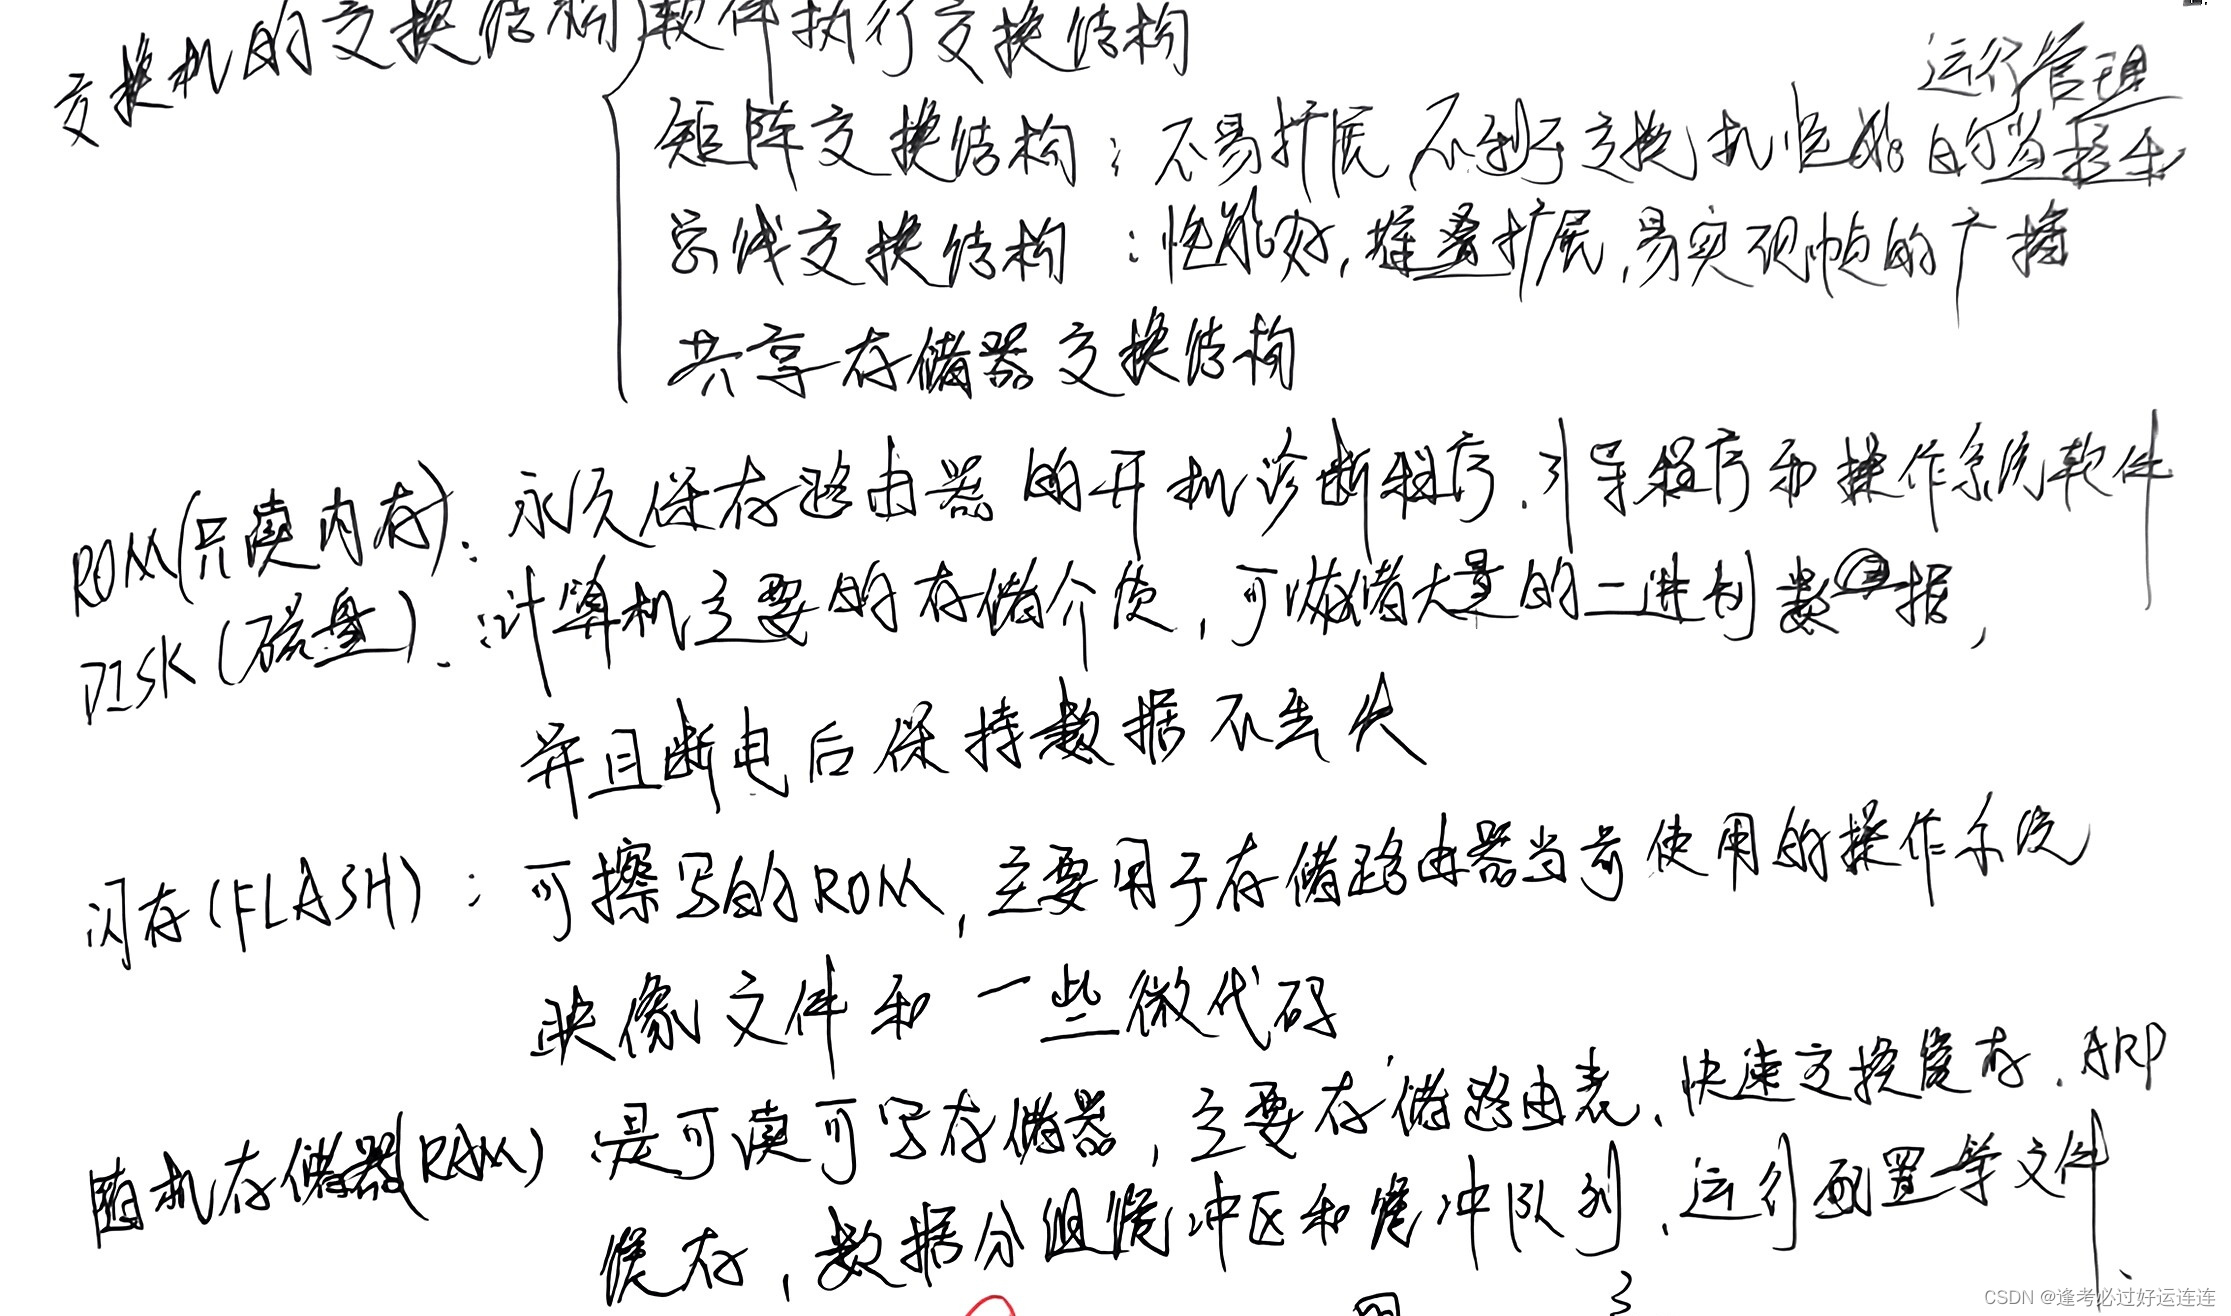 交换机的交换结构 软件执行交换结构
运行管理
矩阵交换结构：不易扩展 不利于交换机性能的监控和
总线交换结构：性能好，堆叠扩展，易实现帧的广播
共享存储器交换结构
ROM(只读内存)：永久保存路由器的开机诊断程序、引导程序和操作系统软件
DISK(磁盘)：计算机主要的存储介质，可以存储大量的二进制数据，
并且断电后保持数据不丢失
闪存(FLASH)：可擦写的ROM，主要用于存储路由器当前使用的操作系统
映像文件和一些微代码
随机存储器(RAM)：是可读可写存储器，主要存储路由表、快速交换缓存、ARP
缓存，数据分组缓冲区和缓冲队列、运行配置等文件
CSDN @逢考必过好运连连